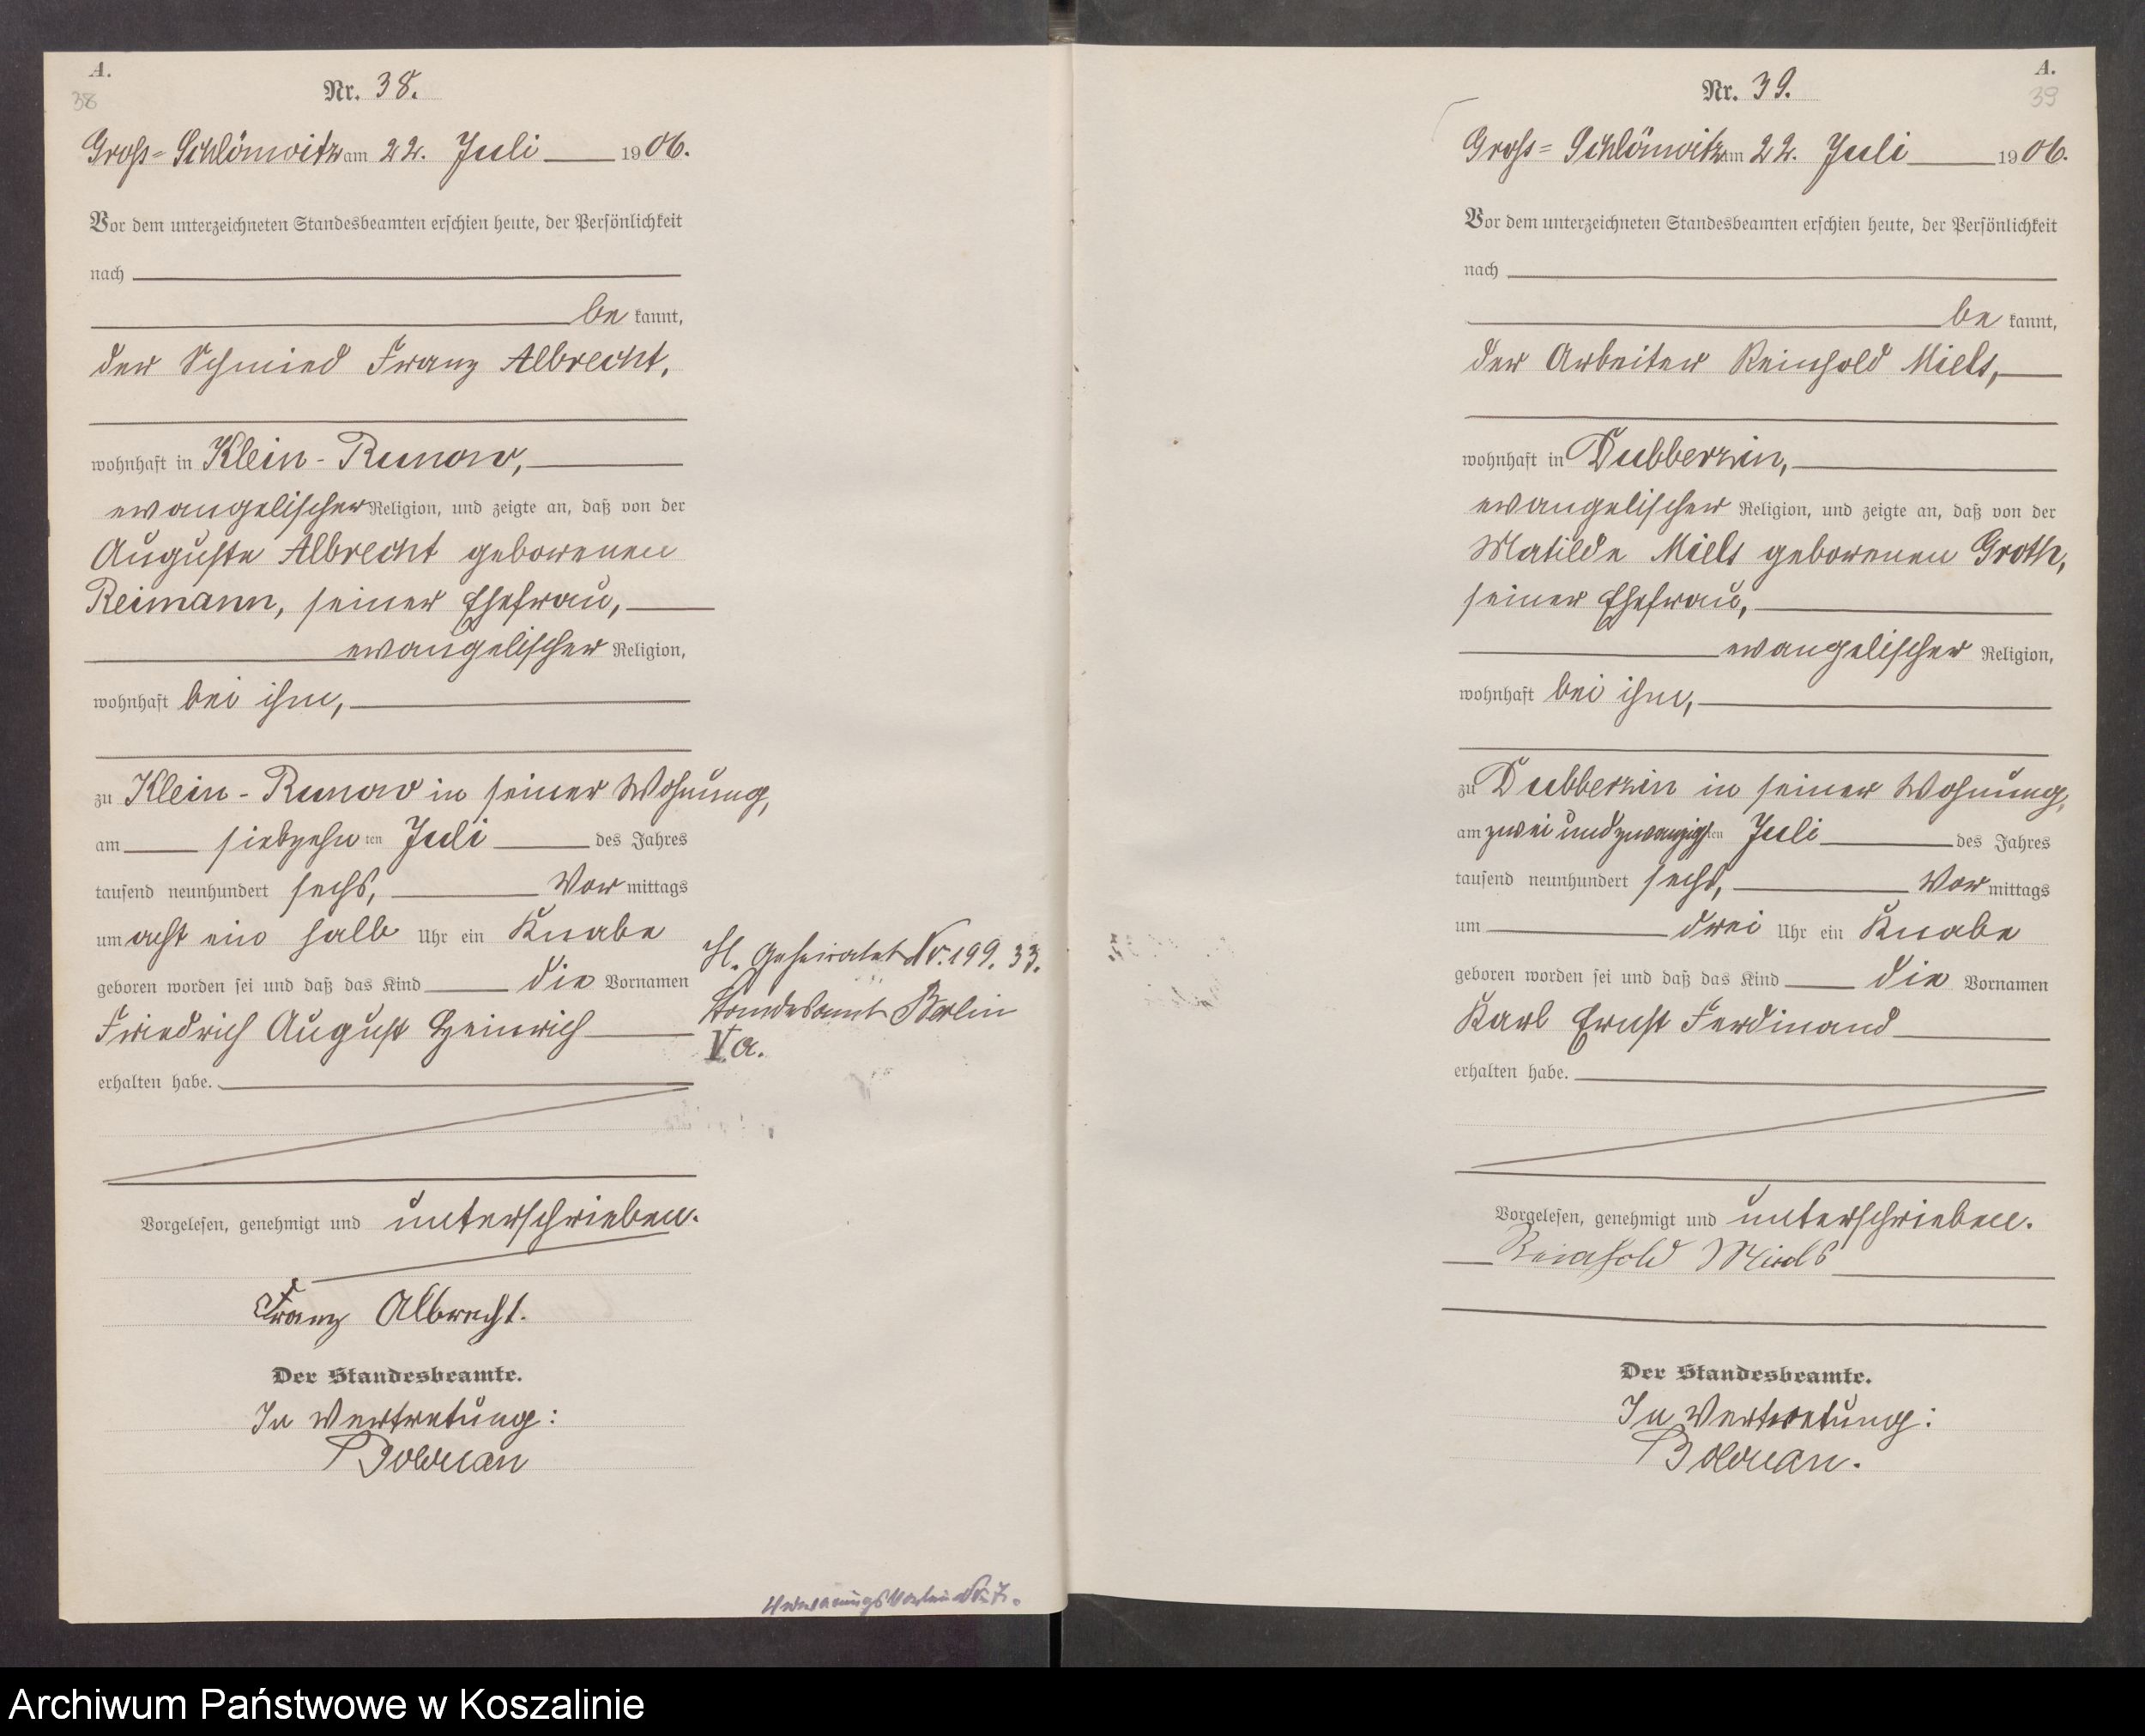 A.
38
Nr. 38.
Gross-Schlönwitz am 22. Juli 1906.
Vor dem unterzeichneten Standesbeamten erschien heute, der Persönlichkeit
nach
be kannt,
der Schmied Franz Albrecht,
wohnhaft in Klein-Runow,
evangelischer Religion, und zeigte an, daß von der
Auguste Albrecht geborenen
Reimann, seiner Ehefrau,
evangelischer Religion,
wohnhaft bei ihm,
zu Klein-Runow in seiner Wohnung,
am siebzehn ten Juli des Jahres
tausend neunhundert sechs, Vor mittags
um acht ein halb Uhr ein Knabe
geboren worden sei und daß das Kind die Vornamen
Friedrich August Heinrich
erhalten habe.
Vorgelesen, genehmigt und unterschrieben.
Franz Albrecht.
Der Standesbeamte.
In Vertretung:
H. Geheiratet Nr. 199. 33.
Standesamt Berlin
V a.
A.
39
Nr. 39.
Gross-Schlönwitz am 22. Juli 1906.
Vor dem unterzeichneten Standesbeamten erschien heute, der Persönlichkeit
nach
be kannt,
der Arbeiter Reinhold Miels,
wohnhaft in Dubberzin,
evangelischer Religion, und zeigte an, daß von der
Matilde Miels geborenen Groth,
seiner Ehefrau,
evangelischer Religion,
wohnhaft bei ihm,
zu Dubberzin in seiner Wohnung,
am zwei und zwanzigs ten Juli des Jahres
tausend neunhundert sechs, Vor mittags
um drei Uhr ein Knabe
geboren worden sei und daß das Kind die Vornamen
Karl Ernst Ferdinand
erhalten habe.
Vorgelesen, genehmigt und unterschrieben.
Reinhold Miels
Der Standesbeamte.
In Vertretung:
Archiwum Państwowe w Koszalinie